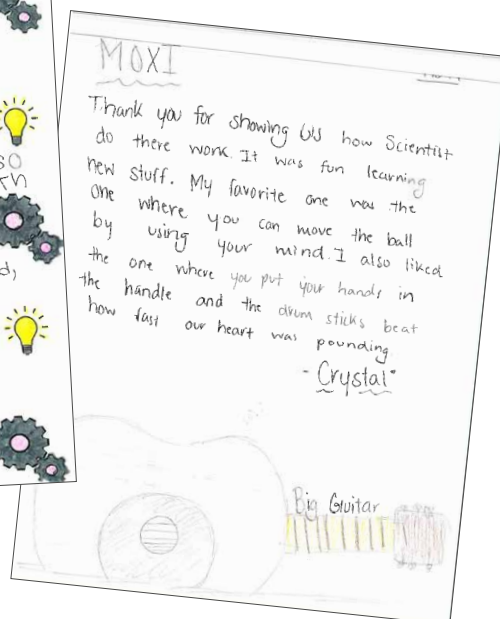 MOXI
Thank you for showing us how Scientist
do there work. It was fun learning
new stuff. My favorite one was the
one where you can move the ball
by using your mind. I also liked
the one where you put your hands in
the handle and the drum sticks beat
how fast our heart was pounding.
- Crystal
Big Guitar
so
d,